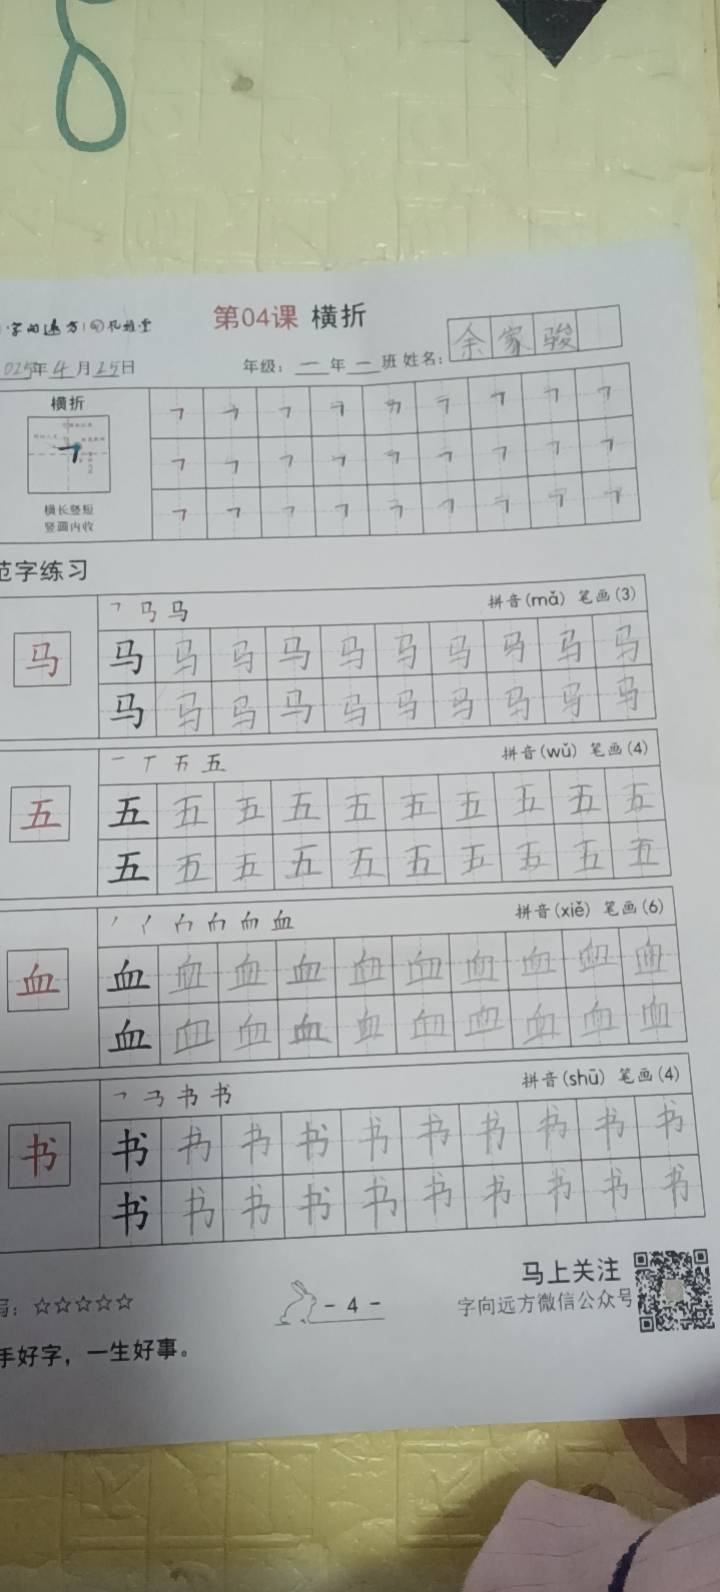 第04课 横折
025年4月25日 年级：一年一班 姓名：余家骏
横折
横长竖短
竖画内收
㇕ ㇕ ㇕ ㇕ ㇕ ㇕ ㇕ ㇕ ㇕
㇕ ㇕ ㇕ ㇕ ㇕ ㇕ ㇕ ㇕ ㇕
㇕ ㇕ ㇕ ㇕ ㇕ ㇕ ㇕ ㇕ ㇕
范字练习
马 拼音(mǎ) 笔画(3)
马
马 马 马 马 马 马 马 马 马 马
马 马 马 马 马 马 马 马 马 马
一 丅 五 拼音(wǔ) 笔画(4)
五
五 五 五 五 五 五 五 五 五 五
五 五 五 五 五 五 五 五 五 五
血 拼音(xiě) 笔画(6)
血
血 血 血 血 血 血 血 血 血 血
血 血 血 血 血 血 血 血 血 血
书 拼音(shū) 笔画(4)
书
书 书 书 书 书 书 书 书 书 书
书 书 书 书 书 书 书 书 书 书
写：☆☆☆☆☆
- 4 -
马上关注
字向远方微信公众号
手好字，一生好事。